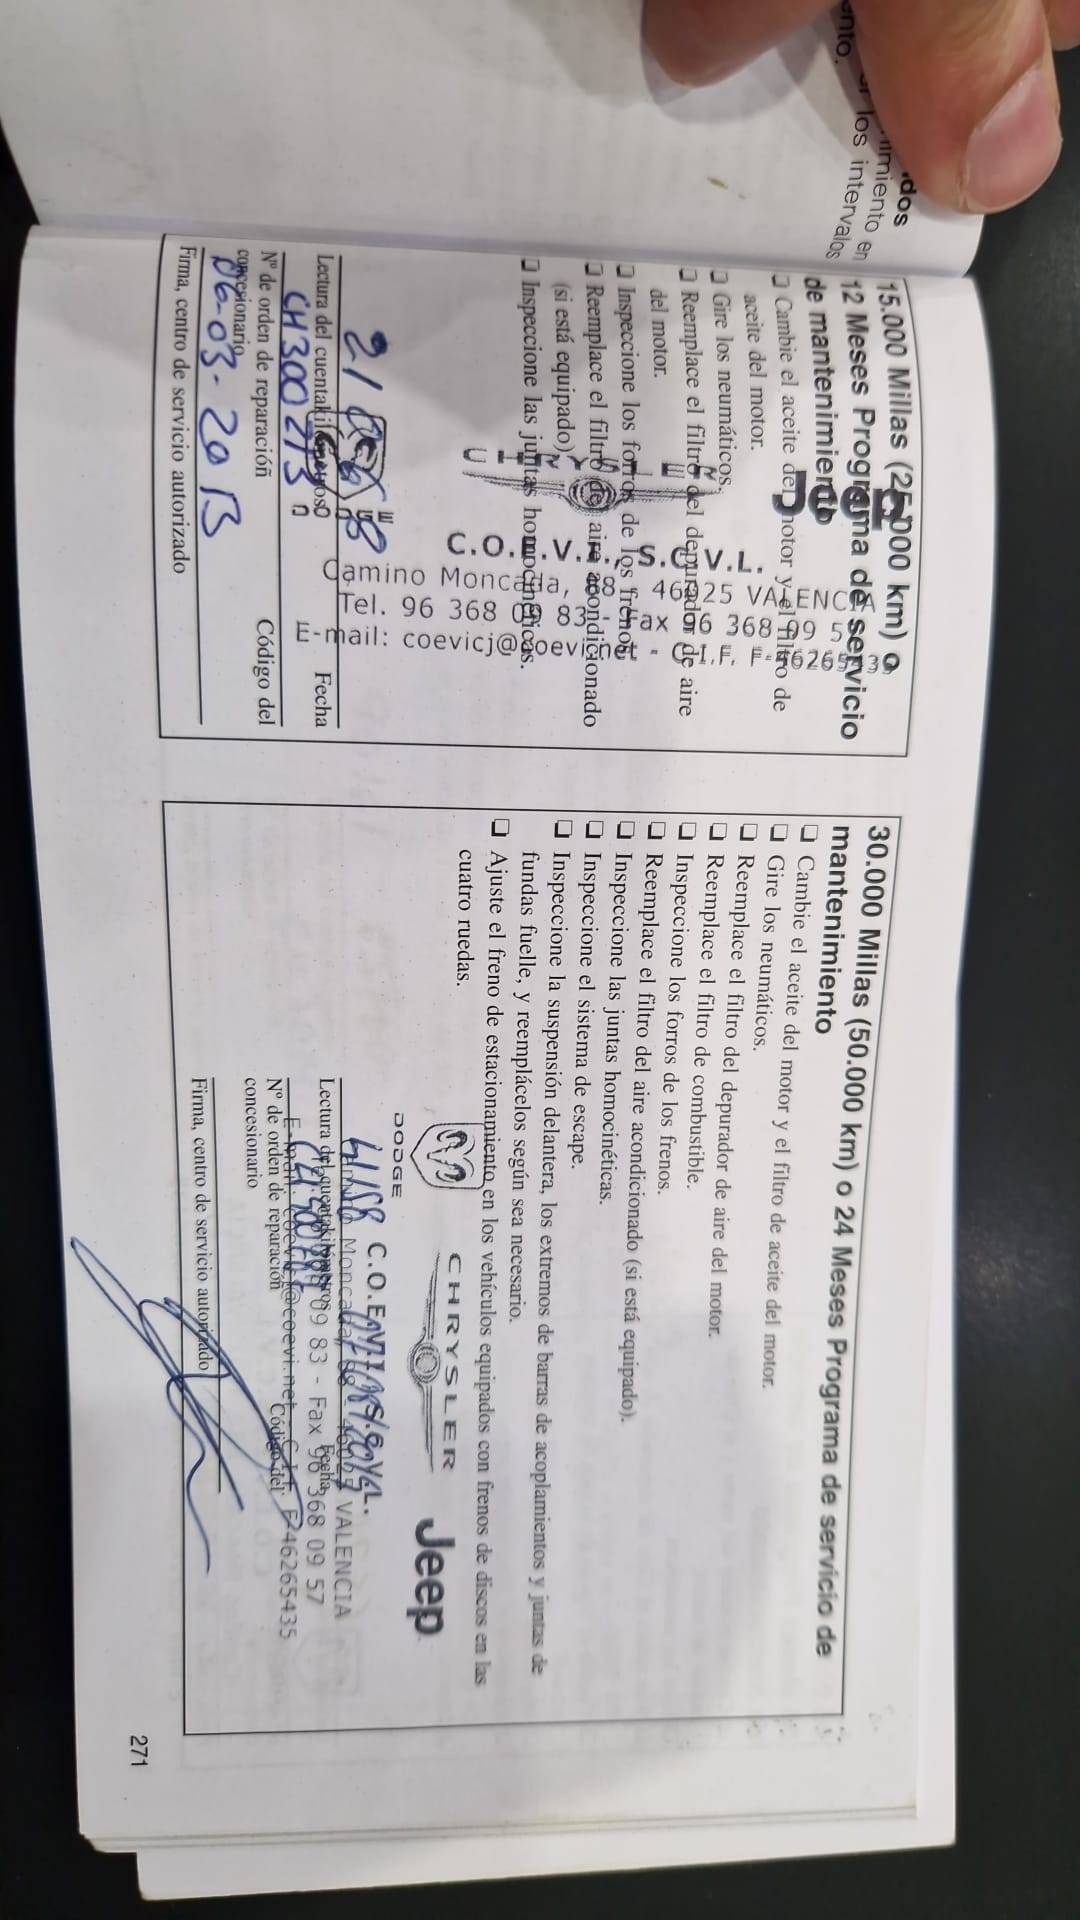 dos
miento en
los intervalos
15.000 Millas (25.000 km) o
12 Meses Programa de servicio
de mantenimiento
❏ Cambie el aceite del motor y el filtro de
aceite del motor.
❏ Gire los neumáticos.
❏ Reemplace el filtro del depurador de aire
del motor.
❏ Inspeccione los forros de los frenos.
❏ Reemplace el filtro del aire acondicionado
(si está equipado)
❏ Inspeccione las juntas homocinéticas.
S.C.V.L.
Camino Moncada, 68 - 46025 VALENCIA
Tel. 96 368 09 83 - Fax 96 368 09 57
E-mail: coevicj@coevi.net - C.I.F. F-46265435
Lectura del cuentakilómetros
Fecha
CH300273
Nº de orden de reparación
Código del
concesionario
06-03-2013
Firma, centro de servicio autorizado
30.000 Millas (50.000 km) o 24 Meses Programa de servicio de
mantenimiento
❏ Cambie el aceite del motor y el filtro de aceite del motor.
❏ Gire los neumáticos.
❏ Reemplace el filtro del depurador de aire del motor.
❏ Reemplace el filtro de combustible.
❏ Inspeccione los forros de los frenos.
❏ Reemplace el filtro del aire acondicionado (si está equipado).
❏ Inspeccione las juntas homocinéticas.
❏ Inspeccione el sistema de escape.
❏ Inspeccione la suspensión delantera, los extremos de barras de acoplamientos y juntas de
fundas fuelle, y reemplácelos según sea necesario.
❏ Ajuste el freno de estacionamiento en los vehículos equipados con frenos de discos en las
cuatro ruedas.
DODGE
CHRYSLER
Jeep
C.O.E.V.I., S.C.V.L.
Camino Moncada, 68 - 46025 VALENCIA
Lectura del cuentakilómetros
Fecha
09 83 - Fax 96 368 09 57
E-mail: coevicj@coevi.net - C.I.F. F-46265435
Nº de orden de reparación
Código del
concesionario
Firma, centro de servicio autorizado
271